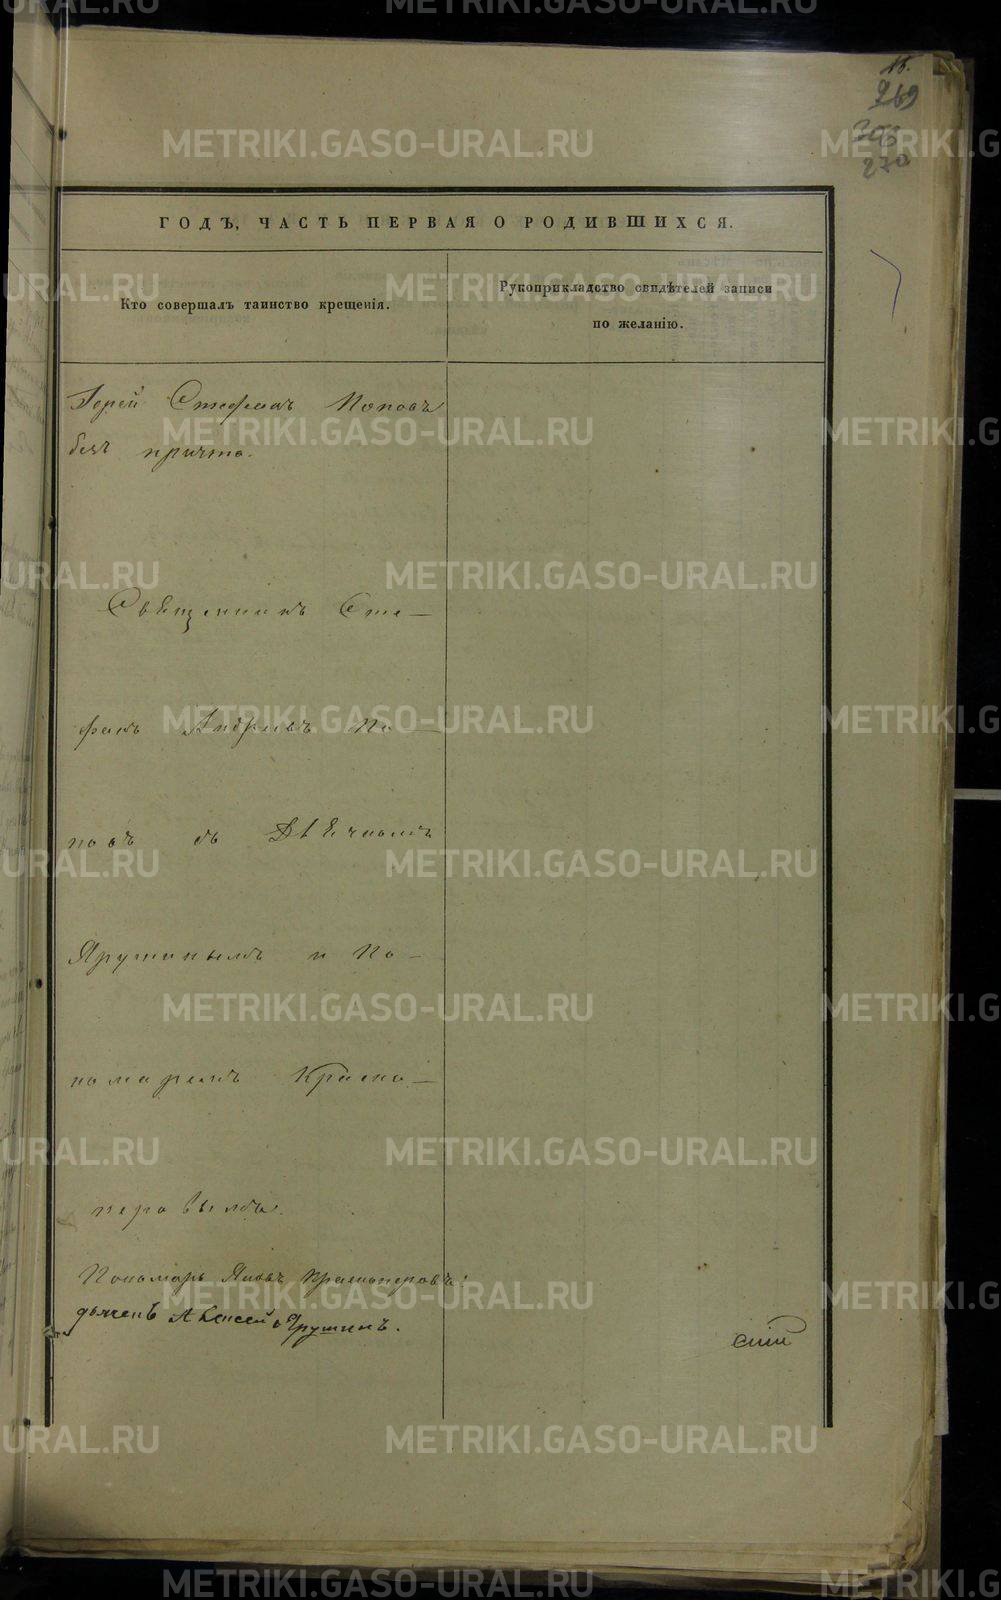 15.
269
306
270
ГОДЪ, ЧАСТЬ ПЕРВАЯ О РОДИВШИХСЯ.
Кто совершалъ таинство крещенія.
Рукоприкладство свидѣтелей записи
по желанію.
Іерей Стефанъ Поповъ
безъ причта.
Священникъ Сте—
фанъ Андреевъ По—
повъ съ Дьячкомъ
Ярушинымъ и По—
номаремъ Красно—
перовымъ.
Пономарь Яковъ Красноперовъ:
дьячекъ Алексей Ярушинъ.
METRIKI.GASO-URAL.RU